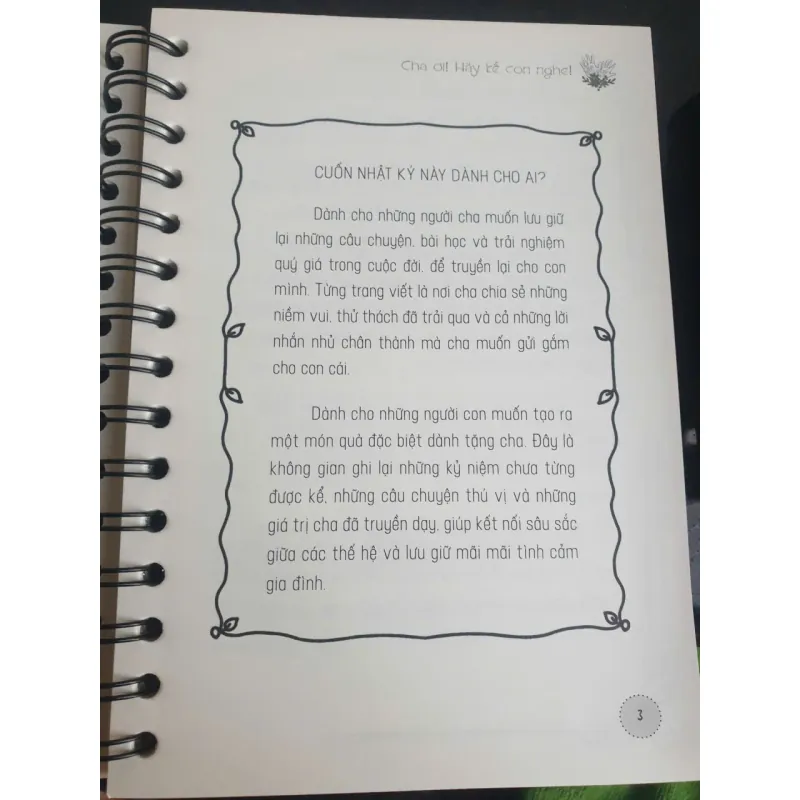 Cha ơi! Hãy kể con nghe!
CUỐN NHẬT KÝ NÀY DÀNH CHO AI?
Dành cho những người cha muốn lưu giữ
lại những câu chuyện, bài học và trải nghiệm
quý giá trong cuộc đời, để truyền lại cho con
mình. Từng trang viết là nơi cha chia sẻ những
niềm vui, thử thách đã trải qua và cả những lời
nhắn nhủ chân thành mà cha muốn gửi gắm
cho con cái.
Dành cho những người con muốn tạo ra
một món quà đặc biệt dành tặng cha. Đây là
không gian ghi lại những kỷ niệm chưa từng
được kể, những câu chuyện thú vị và những
giá trị cha đã truyền dạy, giúp kết nối sâu sắc
giữa các thế hệ và lưu giữ mãi mãi tình cảm
gia đình.
3